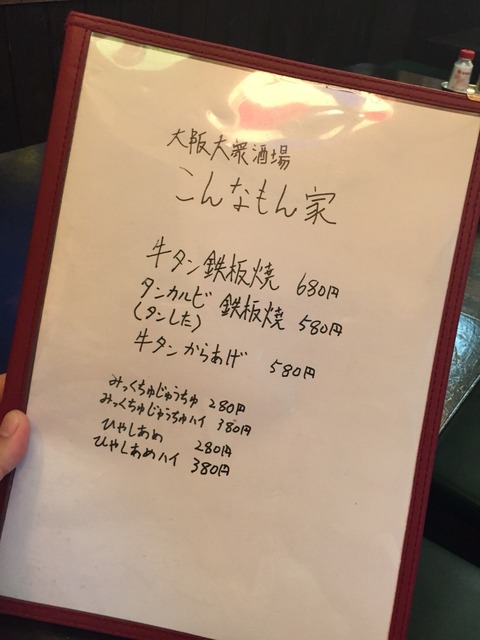 大阪大衆酒場
こんなもん家
牛タン鉄板焼 680円
タンカルビ 鉄板焼 580円
(タンした)
牛タンからあげ 580円
みっくちゅじゅうちゅ 280円
みっくちゅじゅうちゅハイ 380円
ひやしあめ 280円
ひやしあめハイ 380円